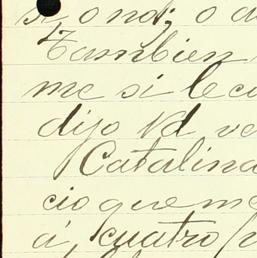 si, o no; o d
Tambien
me si le cu
dijo Vd ve
Catalina
cio que me
á, cuatro